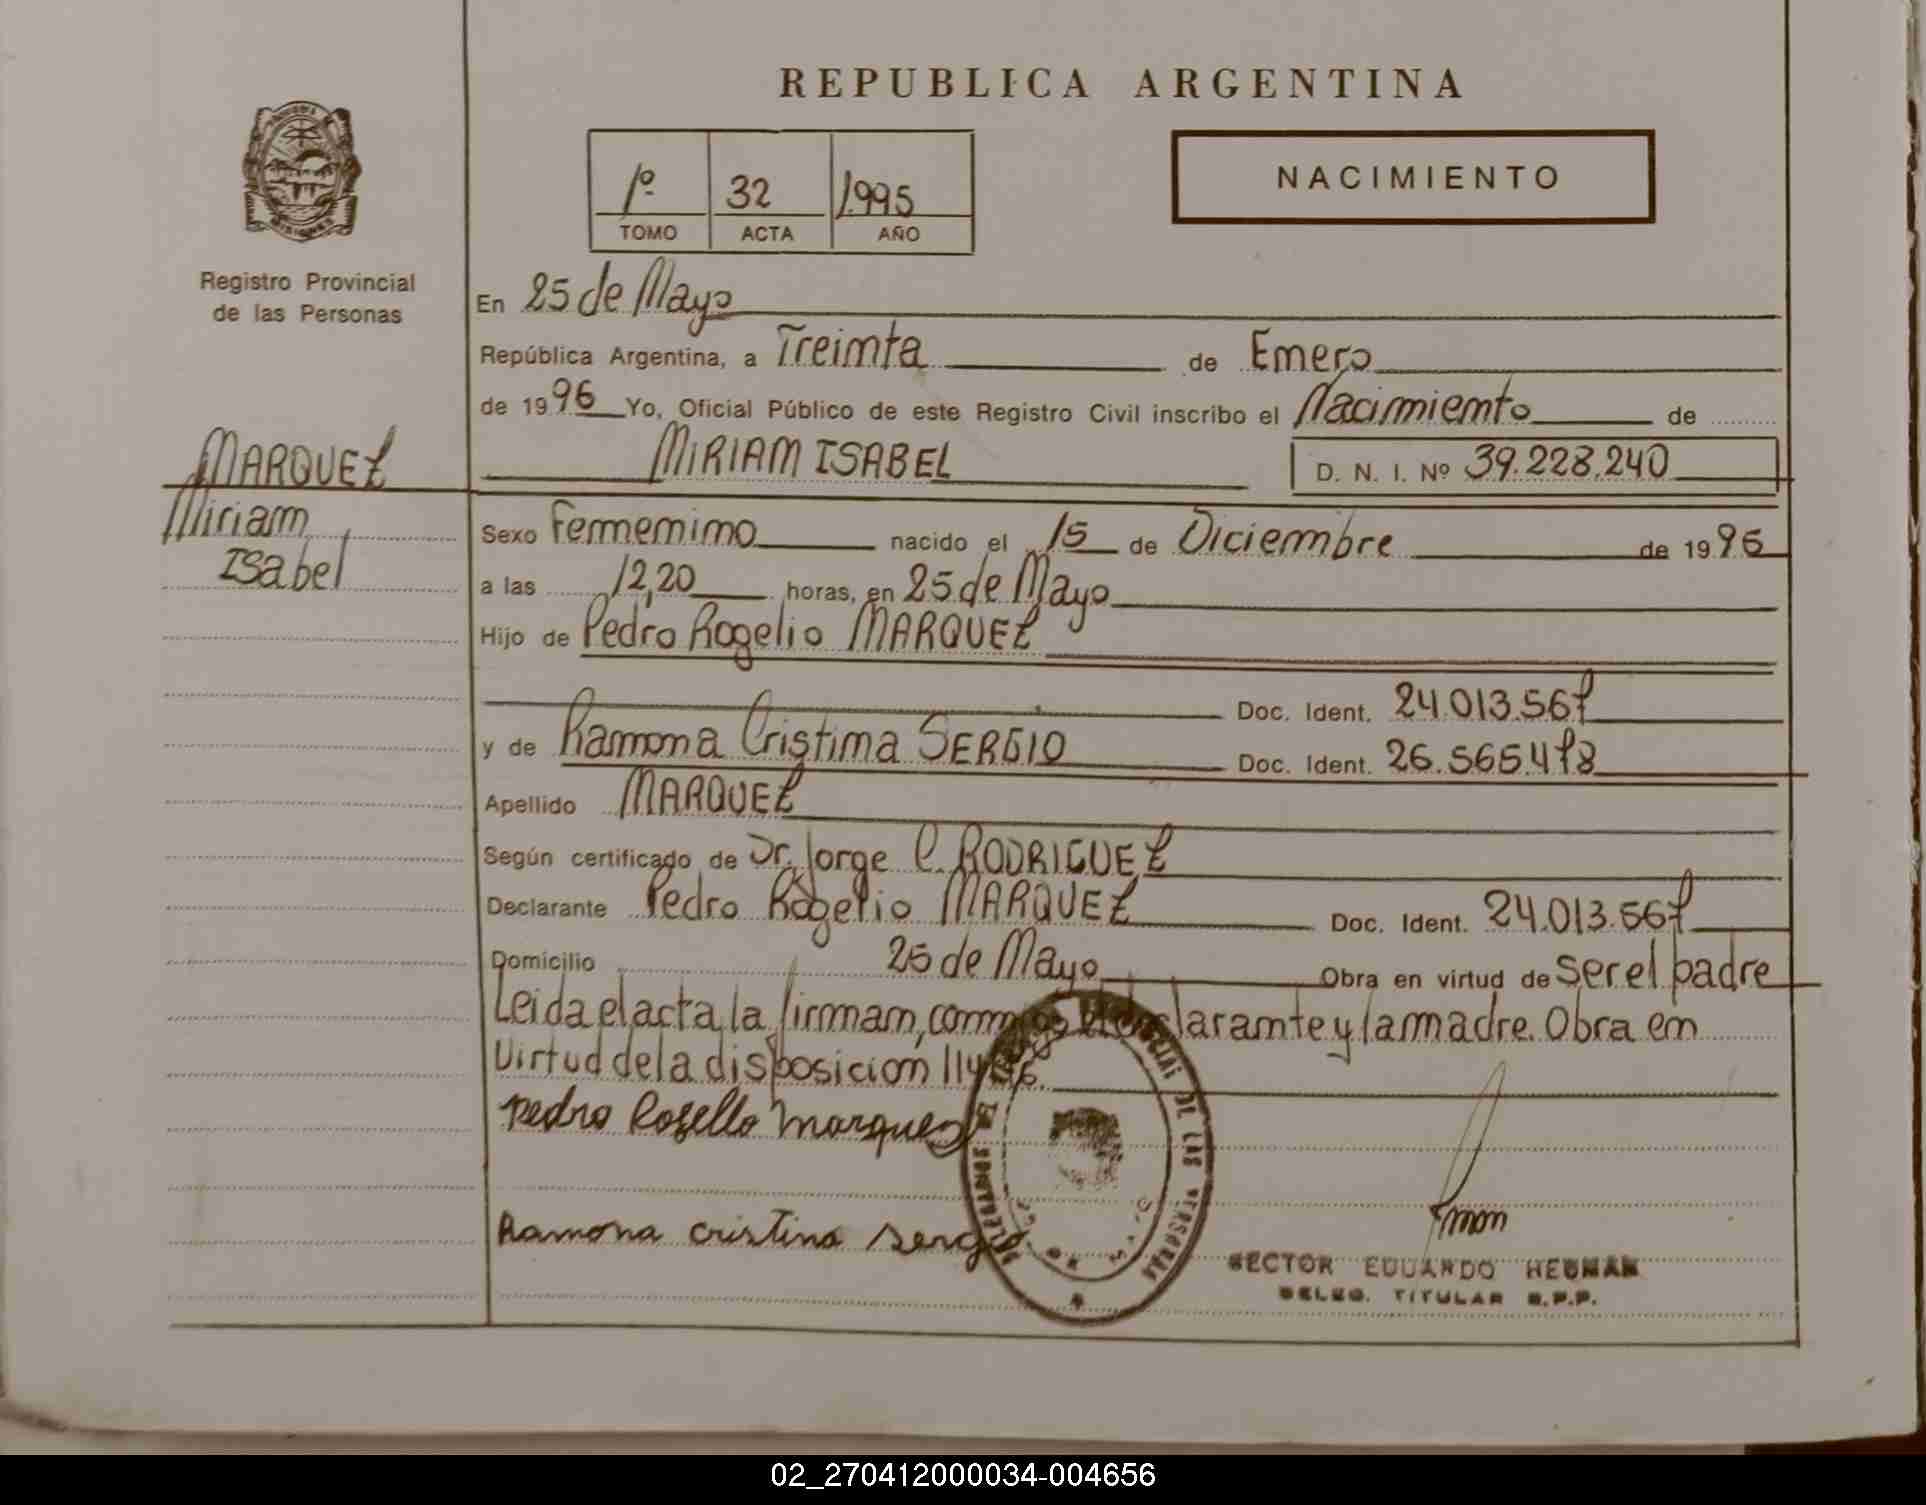 REPUBLICA ARGENTINA
1º 32 1.995
TOMO ACTA AÑO
NACIMIENTO
Registro Provincial
de las Personas
En 25 de Mayo
República Argentina, a Treinta de Enero
de 1996 Yo, Oficial Público de este Registro Civil inscribo el Nacimiento de
MIRIAM ISABEL D. N. I. Nº 39.228.240
MARQUEZ
Miriam
Isabel
Sexo Femenino nacido el 15 de Diciembre de 1995
a las 12,20 horas, en 25 de Mayo
Hijo de Pedro Rogelio MARQUEZ
Doc. Ident. 24.013.567
y de Ramona Cristina SERGIO Doc. Ident. 26.565.478
Apellido MARQUEZ
Según certificado de Dr. Jorge C. RODRIGUEZ
Declarante Pedro Rogelio MARQUEZ Doc. Ident. 24.013.567
Domicilio 25 de Mayo Obra en virtud de Ser el padre
Leida el acta, la firman, conmigo el declarante y la madre. Obra en
Virtud de la disposicion
Pedro Rogelio Marquez
Ramona Cristina Sergio
HECTOR EDUARDO HEUMAN
DELEG. TITULAR R.P.P.
02_270412000034-004656